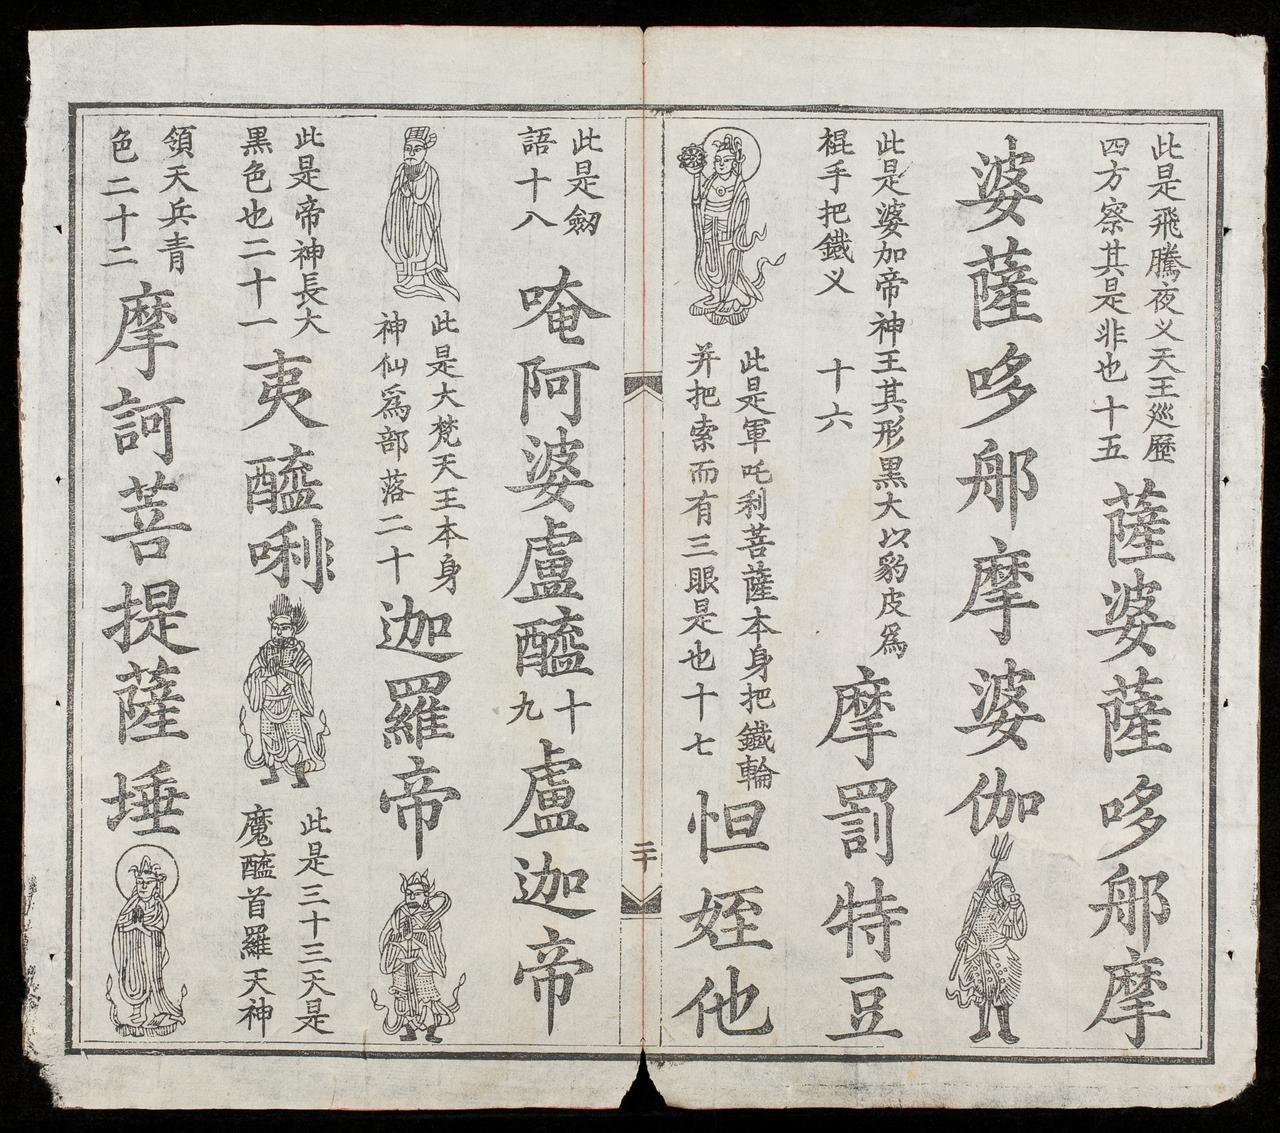 此是飛騰夜义天王巡歷
四方察其是非也十五
薩婆薩哆那摩
婆薩哆那摩婆伽
此是婆加帝神王其形黑大以豹皮爲
棍手把鐵义 十六
摩罰特豆
此是軍吒利菩薩本身把鐵輪
并把索而有三眼是也十七
怛姪他
二十
此是劒
語十八
唵阿婆盧醯
十九
盧迦帝
此是大梵天王本身
神仙爲部落二十
迦羅帝
此是帝神長大
黑色也二十一
夷醯唎
此是三十三天是
魔醯首羅天神
領天兵青
色二十二
摩訶菩提薩埵